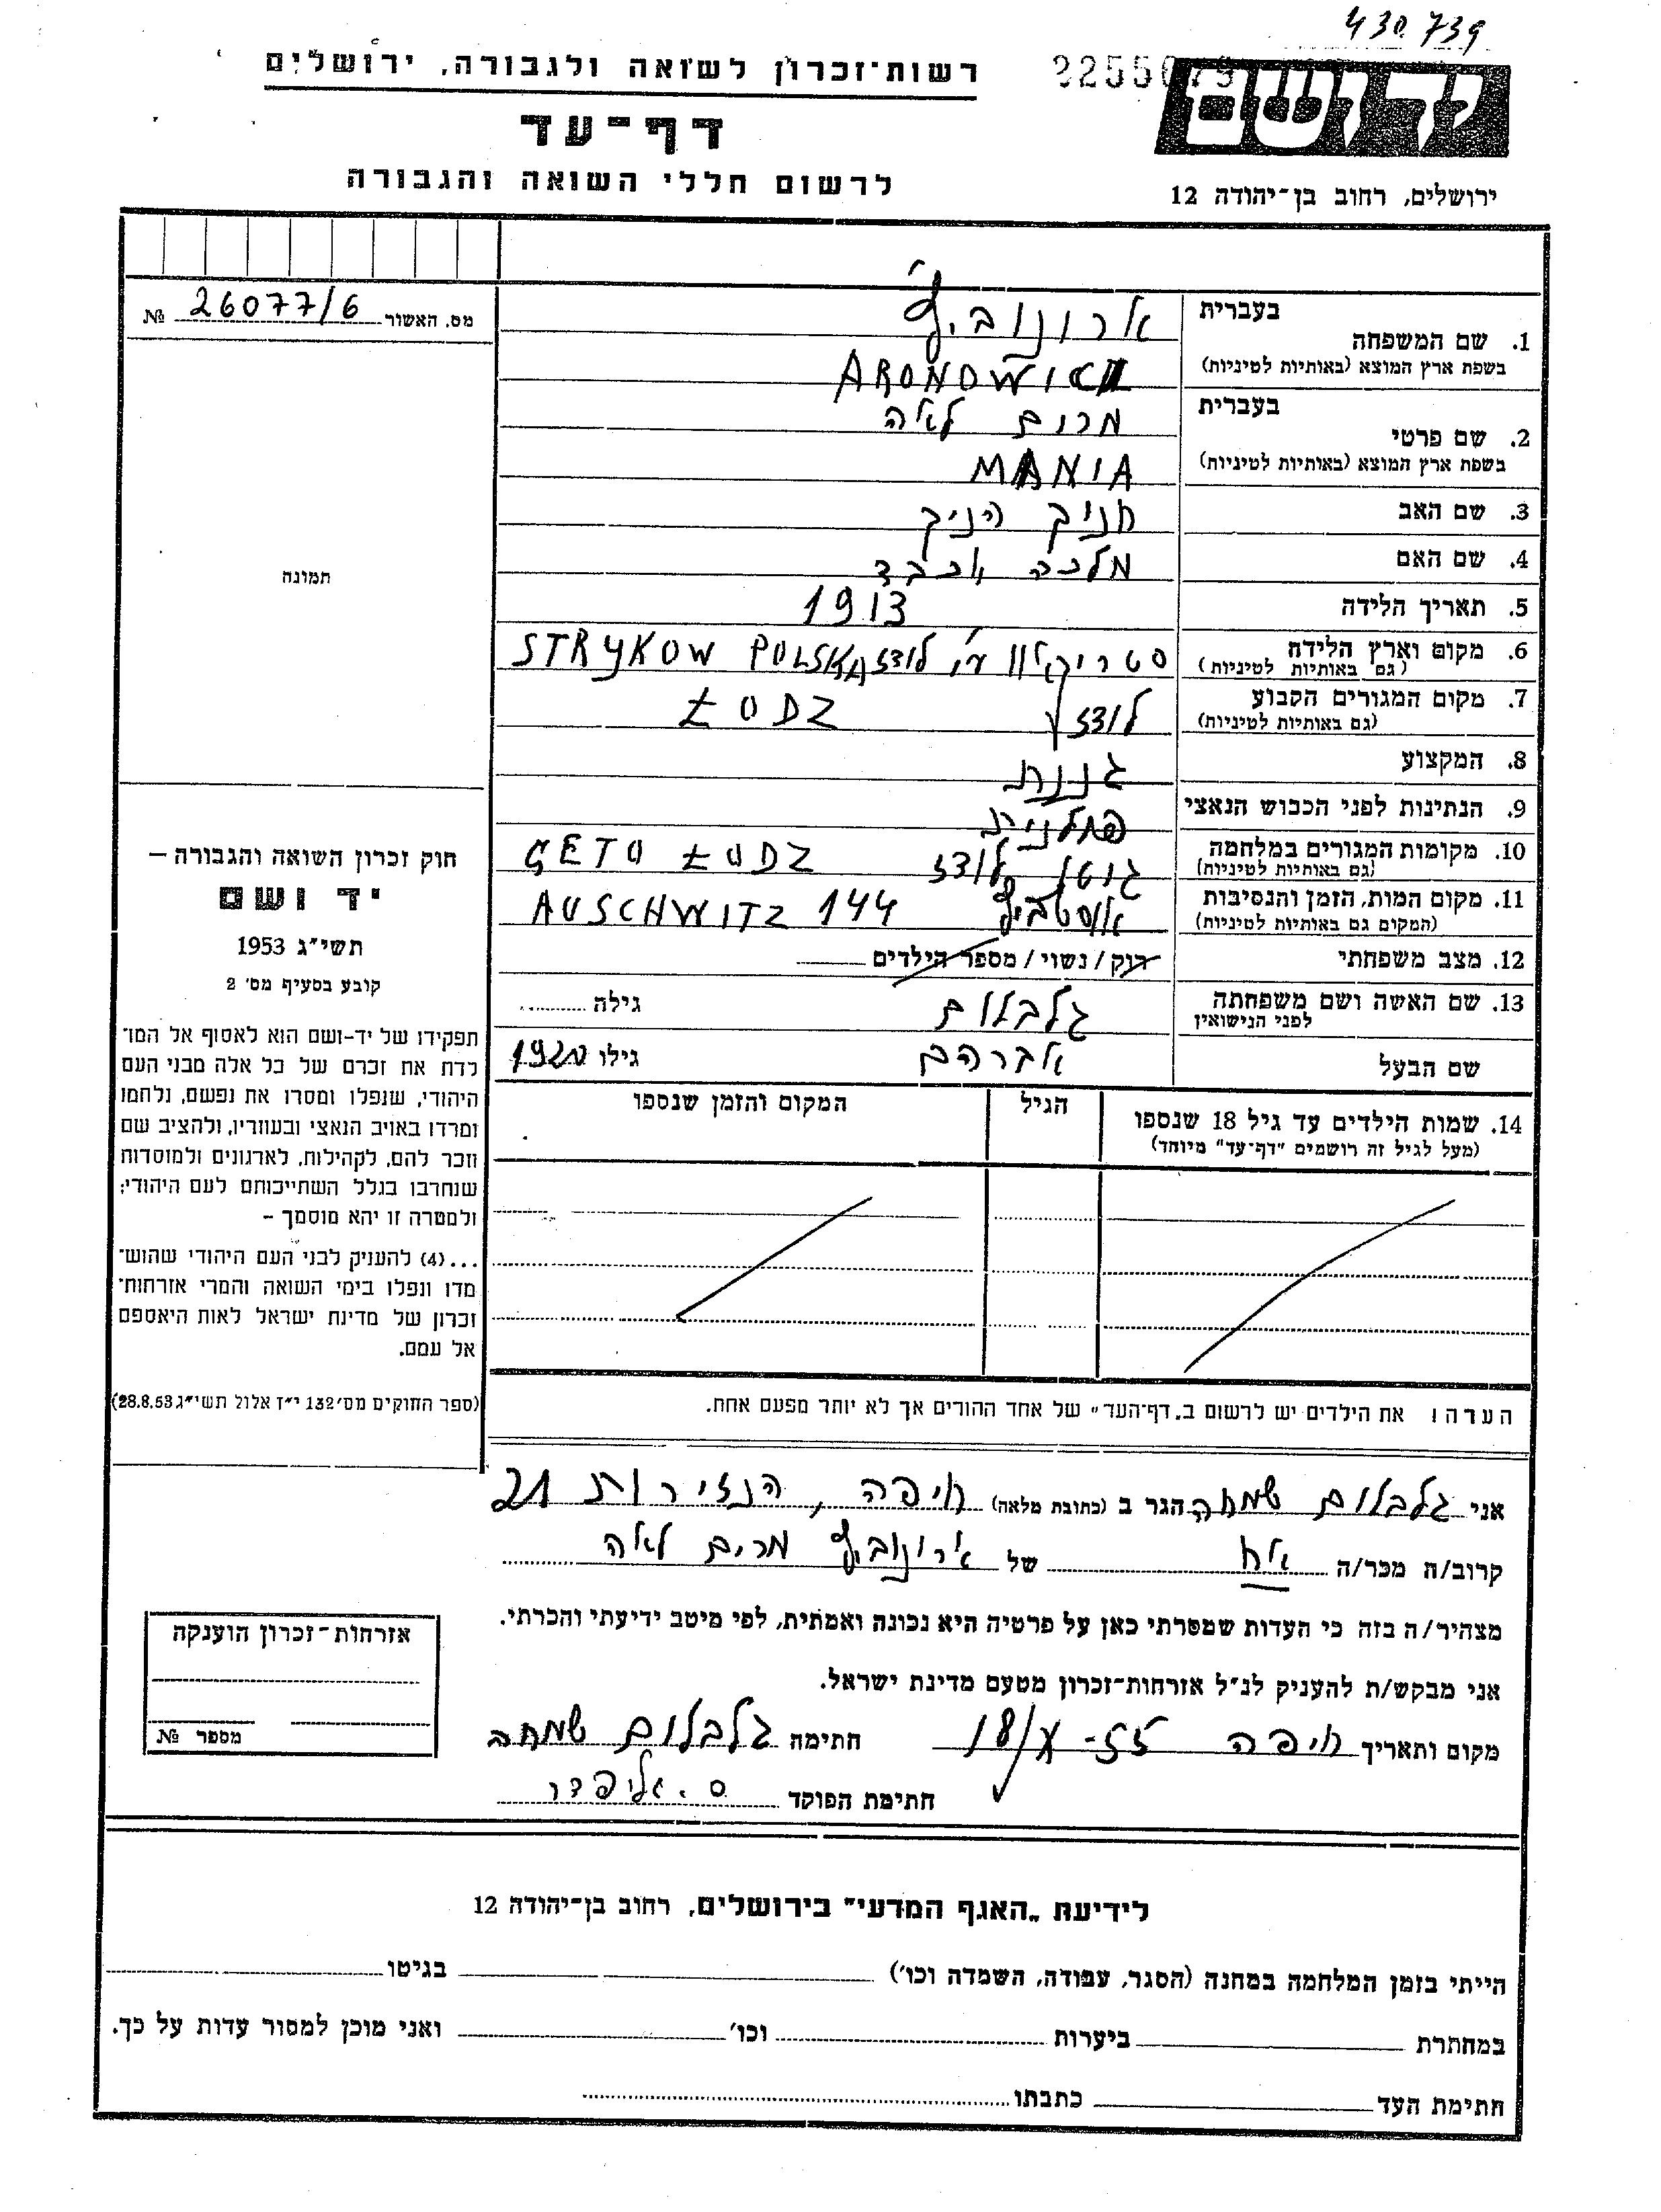 430.739
רשות־זכרון לשואה ולגבורה, ירושלים
דף־עד
לרשום חללי השואה והגבורה
ירושלים, רחוב בן־יהודה 12
מס. האשור 26077/6 №
תמונה
1. שם המשפחה
בעברית ארונוביץ'
בשפת ארץ המוצא (באותיות לטיניות) ARONOWICZ
2. שם פרטי
בעברית מרים לאה
בשפת ארץ המוצא (באותיות לטיניות) MANIA
3. שם האב חנוך הניך
4. שם האם מלכה יוכבד
5. תאריך הלידה 1913
6. מקום וארץ הלידה סטריקוב ע"י לודז STRYKOW POLSKA
(גם באותיות לטיניות)
7. מקום המגורים הקבוע לודז ŁODZ
(גם באותיות לטיניות)
8. המקצוע גננת
9. הנתינות לפני הכבוש הנאצי פולנית
10. מקומות המגורים במלחמה גיטו לודז GETO ŁODZ
(גם באותיות לטיניות)
11. מקום המות, הזמן והנסיבות AUSCHWITZ 144
(המקום גם באותיות לטיניות)
12. מצב משפחתי רוק / נשוי / מספר הילדים
13. שם האשה ושם משפחתה גלבלום גילה
לפני הנישואין
שם הבעל אברהם גילו 1920
14. שמות הילדים עד גיל 18 שנספו הגיל המקום והזמן שנספו
(מעל לגיל זה רושמים "דף־עד" מיוחד)
הערה! את הילדים יש לרשום ב„דף־העד" של אחד ההורים אך לא יותר מפעם אחת.
חוק זכרון השואה והגבורה —
יד ושם
תשי"ג 1953
קובע בסעיף מס' 2
תפקידו של יד-ושם הוא לאסוף אל המו־
לדת את זכרם של כל אלה מבני העם
היהודי, שנפלו ומסרו את נפשם, נלחמו
ומרדו באויב הנאצי ובעוזריו, ולהציב שם
וזכר להם, לקהילות, לארגונים ולמוסדות
שנחרבו בגלל השתייכותם לעם היהודי;
ולמטרה זו יהא מוסמך –
...(4) להעניק לבני העם היהודי שהוש־
מדו ונפלו בימי השואה והמרי אזרחות־
זכרון של מדינת ישראל לאות היאספם
אל עמם.
(ספר החוקים מס' 132 י"ז אלול תשי"ג 28.8.53)
אני גלבלום שמחה הגר ב (כתובת מלאה) חיפה, הנזירות 21
קרוב/ה מכר/ה אח של ארונוביץ מרים לאה
מצהיר/ה בזה כי העדות שמסרתי כאן על פרטיה היא נכונה ואמתית, לפי מיטב ידיעתי והכרתי.
אני מבקש/ת להעניק לנ"ל אזרחות־זכרון מטעם מדינת ישראל.
מקום ותאריך חיפה 18/X-55 חתימה גלבלום שמחה
חתימת הפוקד
אזרחות־זכרון הוענקה
מספר №
לידיעת „האגף המדעי" בירושלים, רחוב בן־יהודה 12
הייתי בזמן המלחמה במחנה (הסגר, עבודה, השמדה וכו') בגיטו
במחתרת ביערות וכו' ואני מוכן למסור עדות על כך.
חתימת העד כתבתו